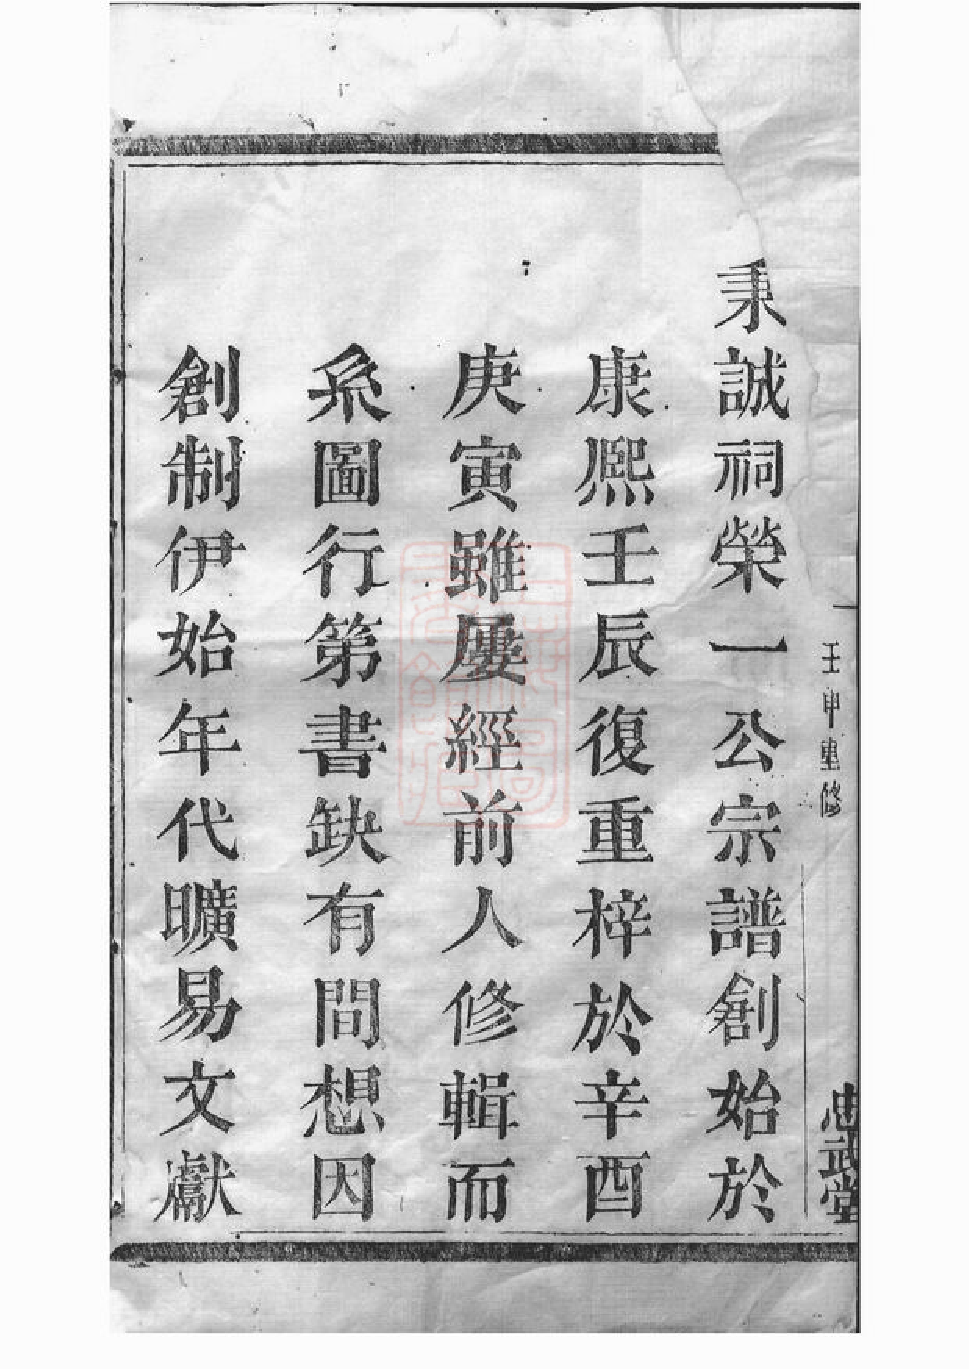 秉誠祠榮一公宗譜創始於
康熙壬辰復重梓於辛酉
庚寅雖屢經前人修輯而
系圖行第書缺有間想因
創制伊始年代曠易文獻
壬申重修
忠武堂